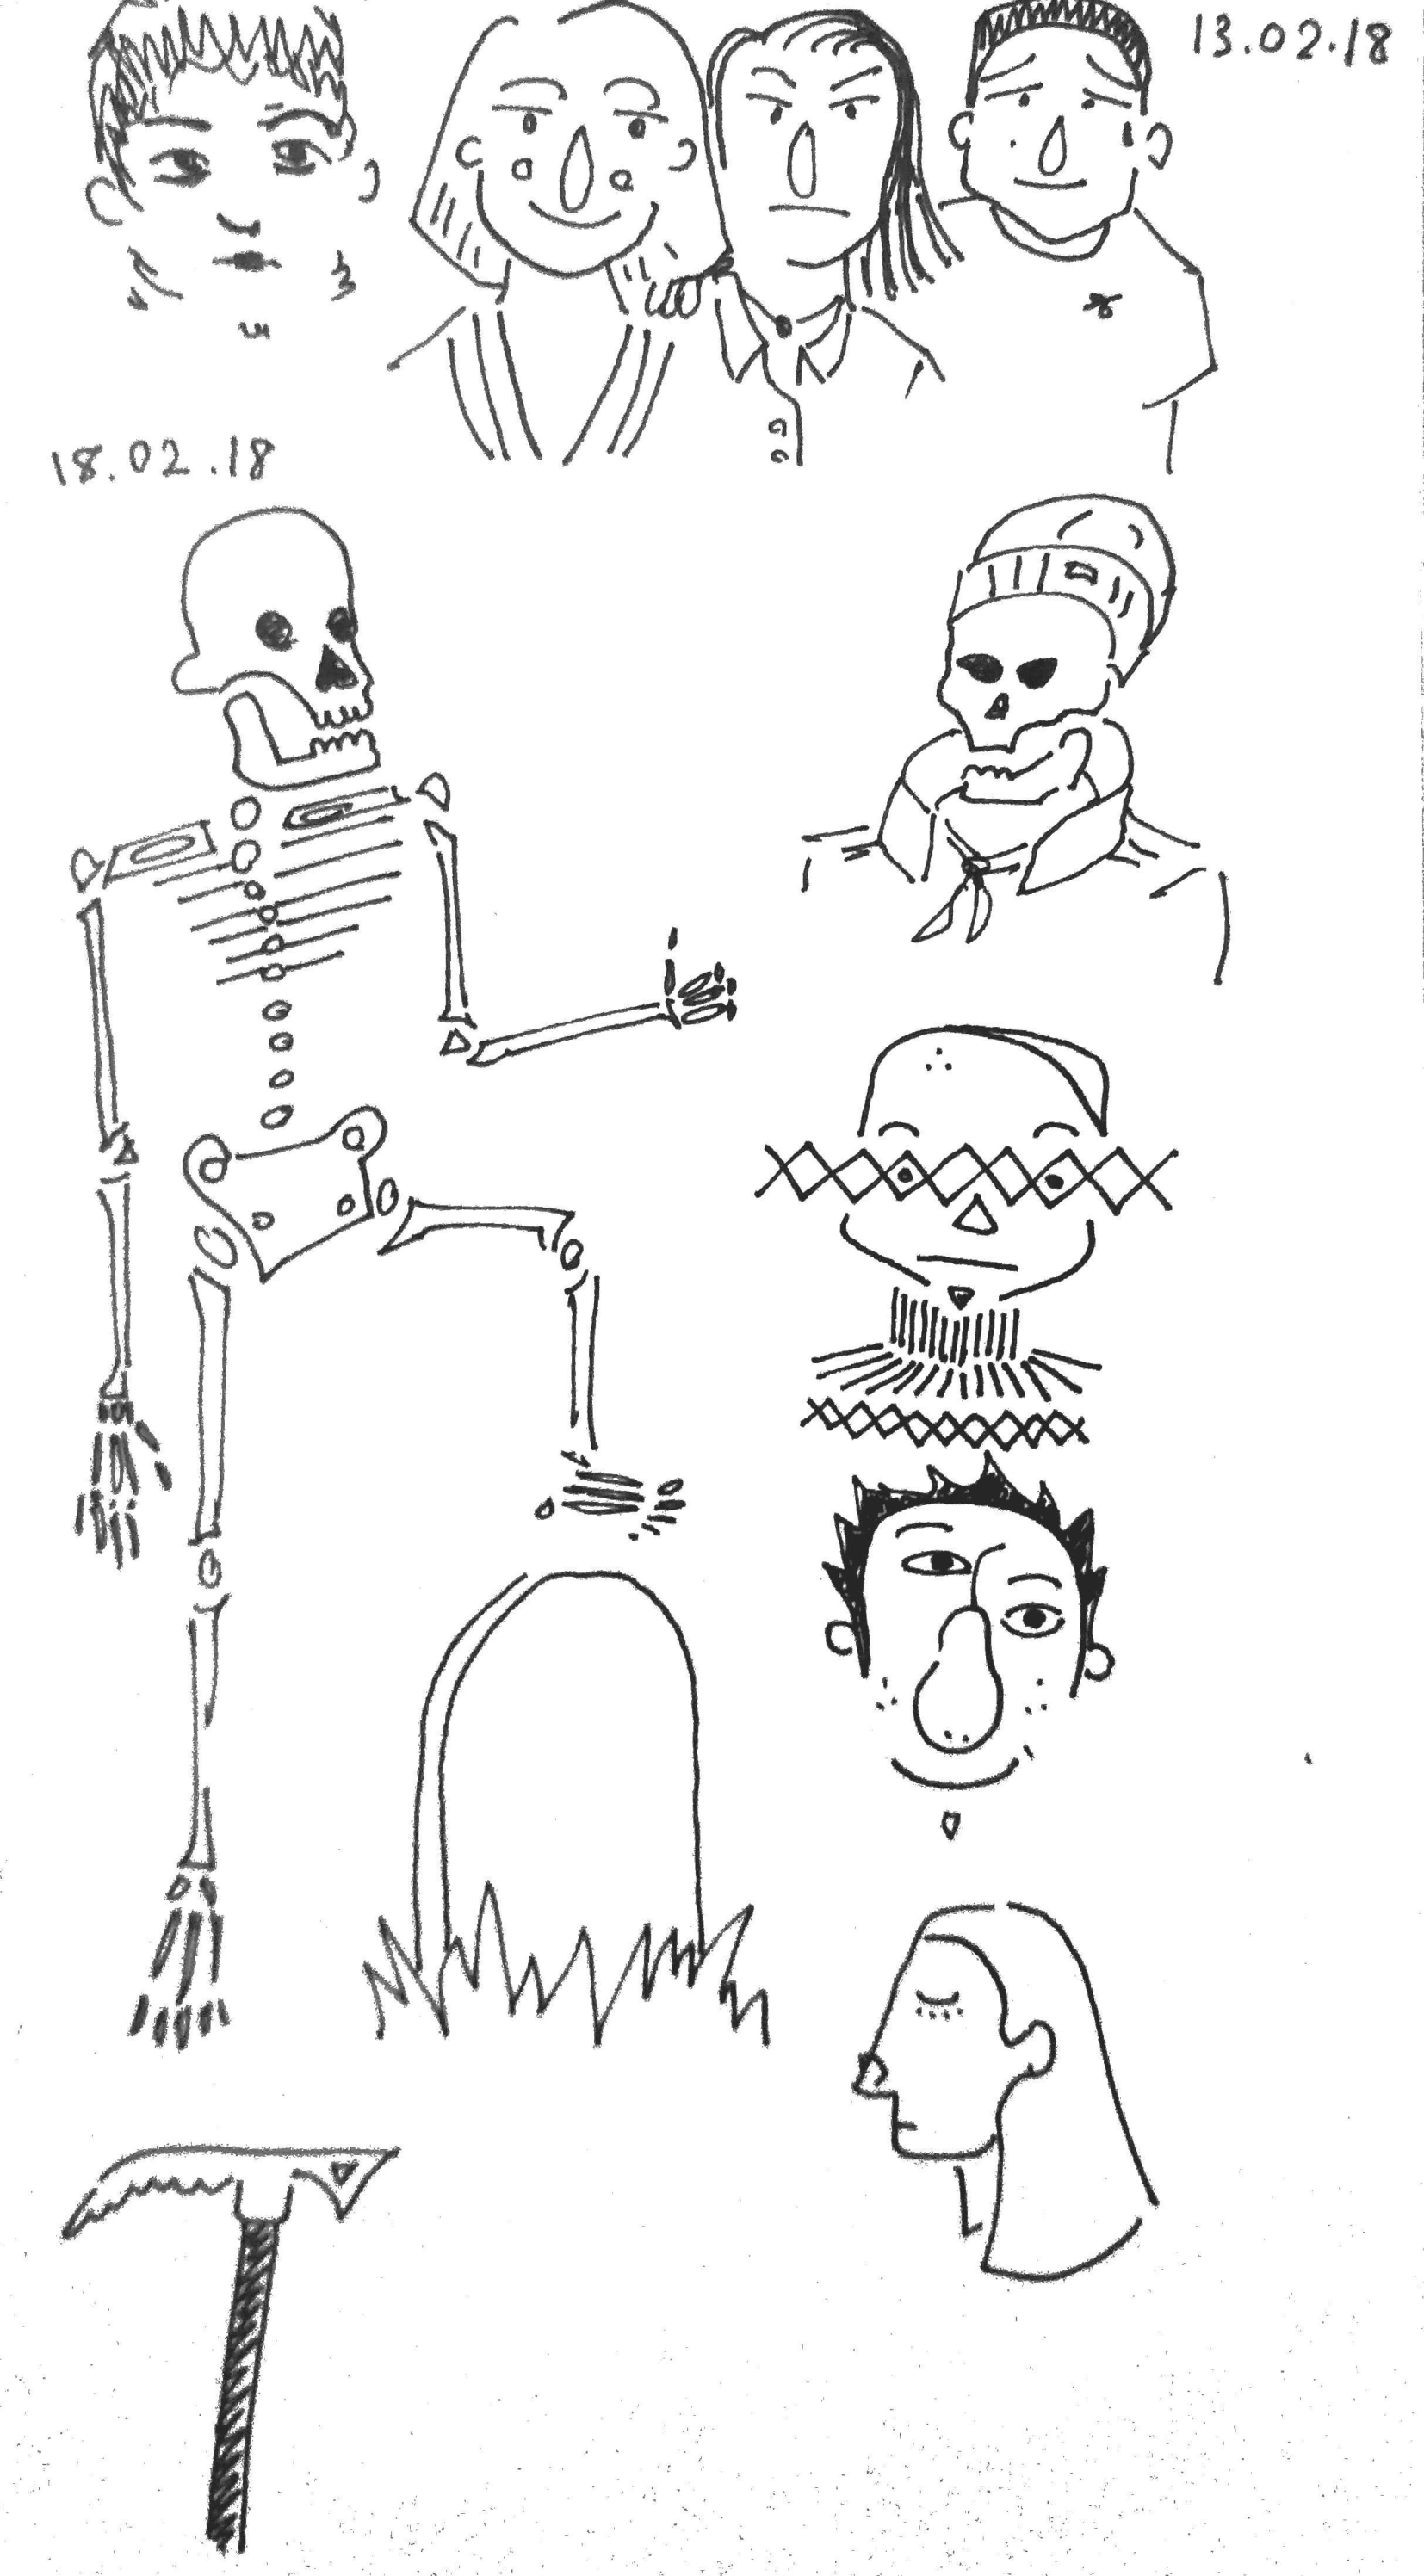 13.02.18
18.02.18